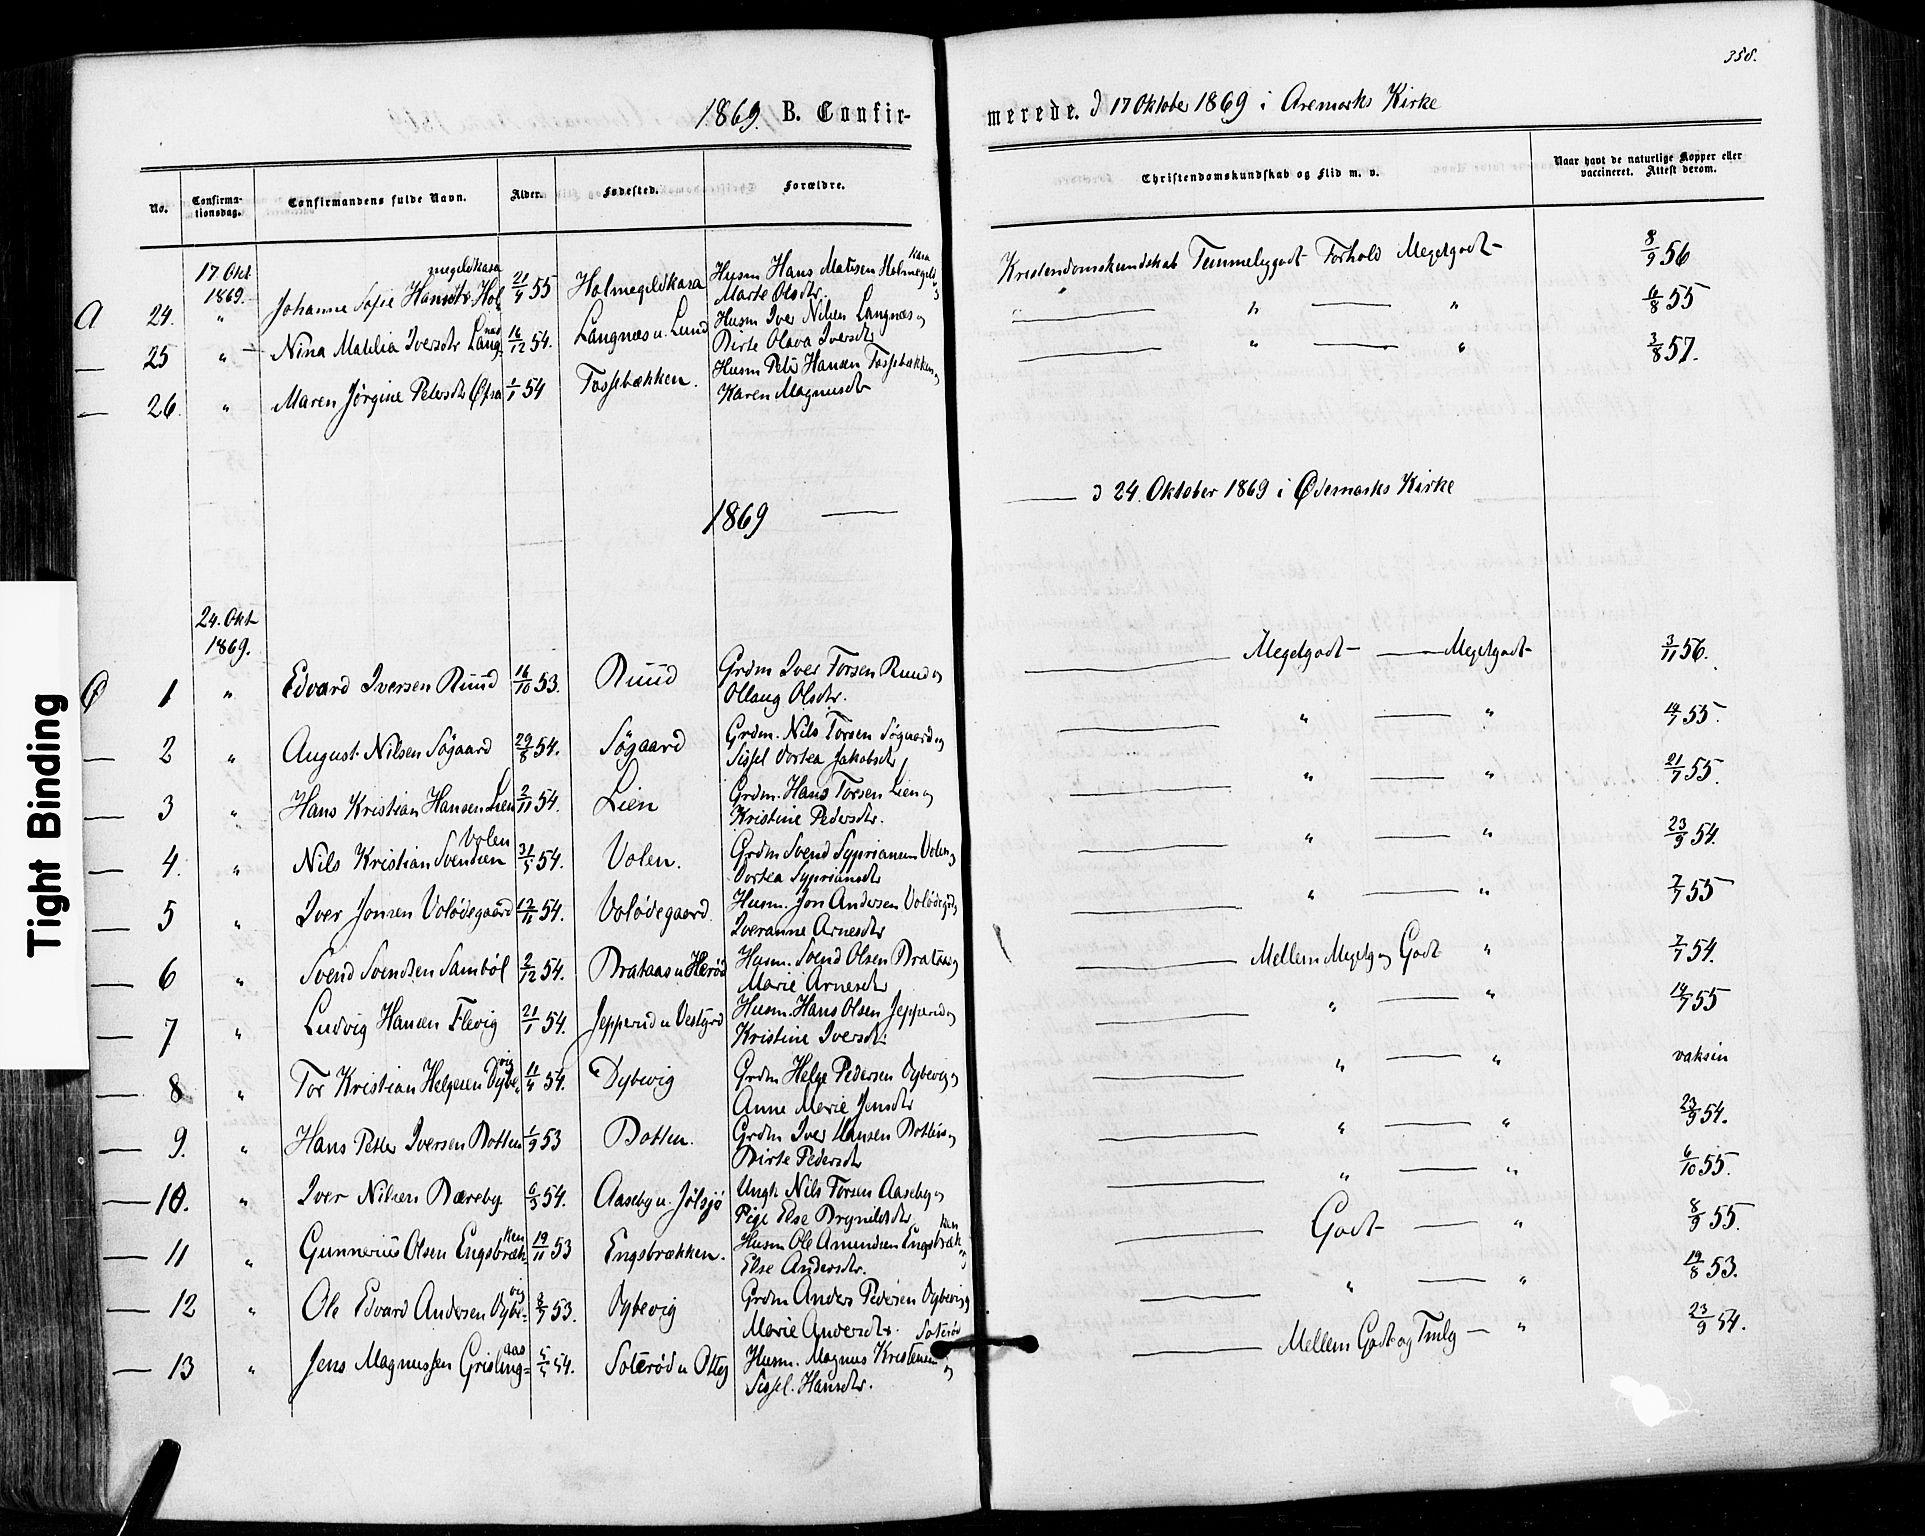 358.
1869. B. Confir-
merede. d 17 Oktober 1869 i Aremarks Kirke
No.
Confirma-
tionsdag.
Confirmandens fulde Navn.
Alder.
Fødested.
Forældre.
Christendomskundskab og Flid m. v.
Naar havt de naturlige Kopper eller
vaccineret. Attest derom.
17 Okt
1869.
A 24. " Johanne Sofie Hansdtr Hol-
megeldkasa
21/4 55 Holmegeldkasa Husm Hans Matisen Holmegeld
kasa
Marte Olsdtr.
Kristendomskundskab Temmeliggodt Forhold Megetgodt — 8/9 56
— 25 " Nina Matilia Iversdtr Lang-
næs
16/12 54. Langnæs u. Lund Husm Iver Nilsen Langnæs og
Birte Olava Iversdtr
— " — " 6/8 55
— 26. " Maren Jørgine Petersdtr 1/1 54 Fossbækken. Husm Peter Hansen Fossbækken og
Karen Magnusdtr
— " — " 3/8 57.
1869 —
— d 24. Oktober 1869 i Ødemarks Kirke
24. Okt
1869.
Ø 1 " Edvard Iversen Ruud 16/10 53. Ruud Grdm Iver Torsen Ruud og
Ollaug Olsdtr.
— Megetgodt — Megetgodt — 3/11 56.
— 2 " August Nilsen Søgaard 29/8 54. Søgaard Grdm. Nils Torsen Søgaard og
Sissel Dortea Jakobsdtr
— " — " 14/7 55.
— 3 " Hans Kristian Hansen Lien 2/11 54. Lien Grdm. Hans Torsen Lien og
Kristine Pedersdtr.
— " — " 21/7 55.
— 4. " Nils Kristian Svendsen
Volen
31/5 54. Volen. Grdm Svend Sypriansen Volen og
Dortea Sypriansdtr
— " — " 23/9 54.
— 5 " Iver Jonsen Volødegaard 12/11 54. Volødegaard. Husm. Jon Andersen Volødegrd og
Iveranne Arnesdtr
— " — " 7/7 55
— 6 " Svend Svendsen Sambøl 2/12 54. Brataas u Herød Husm. Svend Olsen Brataas og
Marie Arnesdtr
— Mellem Megetg og Godt " 7/7 54.
— 7 " Ludvig Hansen Flevig 21/1 54. Jepperud u Vestgrd Husm. Hans Olsen Jepperud og
Kristine Iversdtr
— " — " 14/7 55
— 8 " Tor Kristian Helgesen Dybe-
vig
11/4 54. Dybevig Grdm Helge Pedersen Dybevig og
Anne Marie Jensdtr
— " — " vaksin
— 9. " Hans Petter Iversen Botten 1/9 53 Botten. Grdm Iver Hansen Botten og
Birte Pedersdtr
— " — " 23/9 54.
— 10. " Iver Nilsen Bæreby 6/3 54. Aaseby u. Jølsjø Ungk Nils Torsen Aaseby og
Pige Else Brynildsdtr
— " — " 6/10 55.
— 11 " Gunnerius Olsen Engsbræk-
ken
19/11 53 Engsbrækken. Husm Ole Amundsen Engsbræk
ken
og
Else Andersdtr.
— Godt — " 8/9 55.
— 12 " Ole Edvard Andersen Dybe-
vig
8/7 53. Dybevig Grdm Anders Pedersen Dybevig og
Marie Andersdtr.
— " — " 19/8 53.
— 13 " Jens Magnussen Grisling-
aas
5/5 54. Soterød u Otteg Husm. Magnus Kristensen
Soterød
og
Sissel. Hansdtr.
— Mellem Godt og Tmlg — " 23/9 54.
Tight Binding